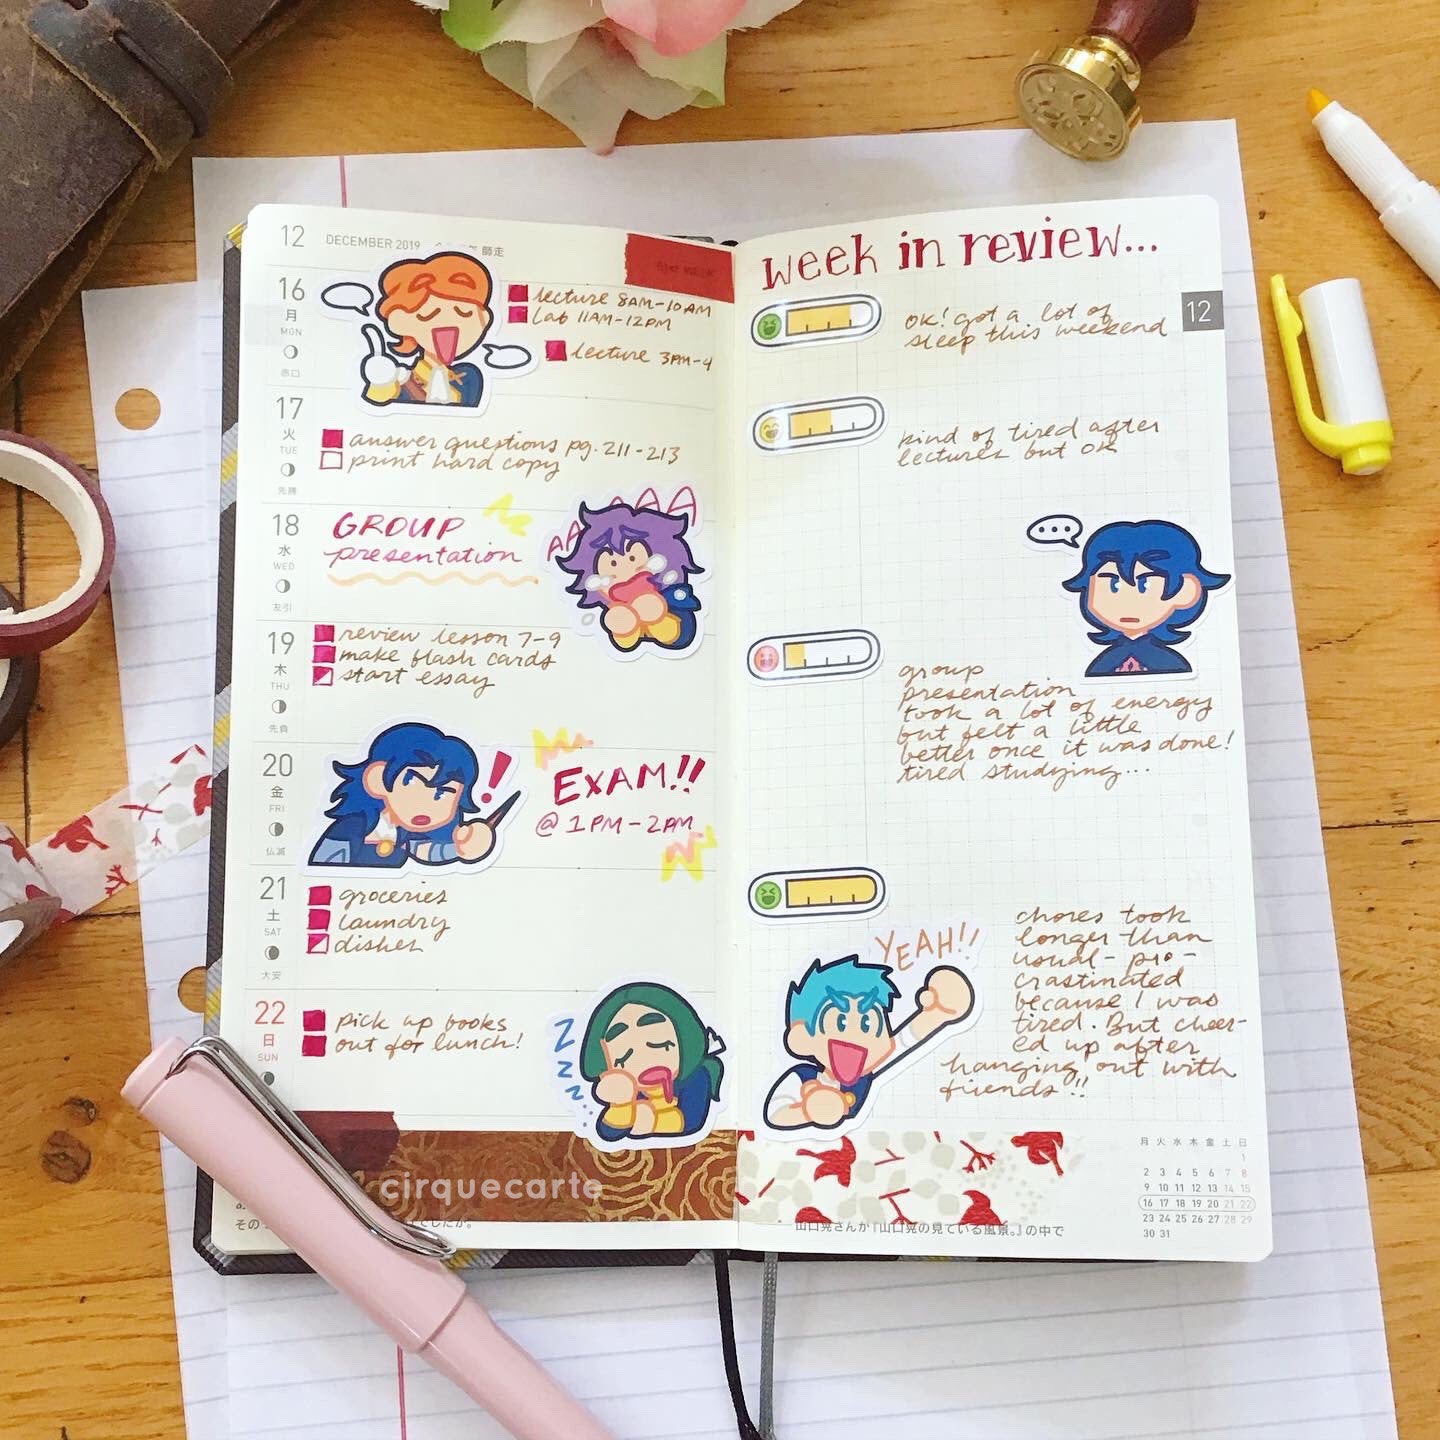 12 DECEMBER 2019 師走
16 月 MON 赤口
lecture 8AM-10AM
Lab 11AM-12PM
lecture 3PM-4
17 火 TUE 先勝
answer questions pg. 211-213
print hard copy
18 水 WED 友引
GROUP
presentation
AAAAA
19 木 THU 先負
review lesson 7-9
make flash cards
start essay
20 金 FRI 仏滅
!
EXAM!!
@ 1PM-2PM
21 土 SAT 大安
groceries
laundry
dishes
22 日 SUN
pick up books
out for lunch!
Z Z Z Z...
cirquecarte
week in review...
12
OK! got a lot of
sleep this weekend
kind of tired after
lectures but OK
...
group
presentation
took a lot of energy
but felt a little
better once it was done!
tired studying...
YEAH!!
chores took
longer than
usual - pro-
crastinated
because I was
tired. But cheer-
ed up after
hanging out with
friends!!
月 火 水 木 金 土 日
1
2 3 4 5 6 7 8
9 10 11 12 13 14 15
16 17 18 19 20 21 22
23 24 25 26 27 28 29
30 31
山口晃さんが『山口晃の見ている風景。』の中で